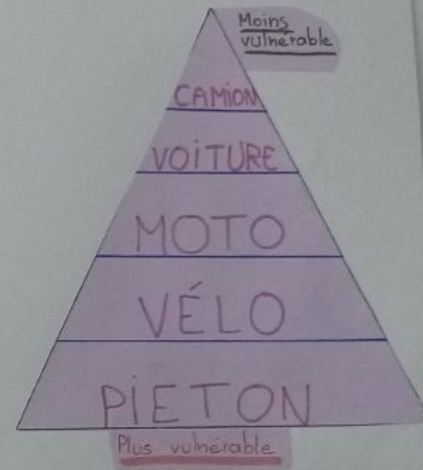 Moins
vulnérable
CAMION
VOITURE
MOTO
VÉLO
PIETON
Plus vulnérable